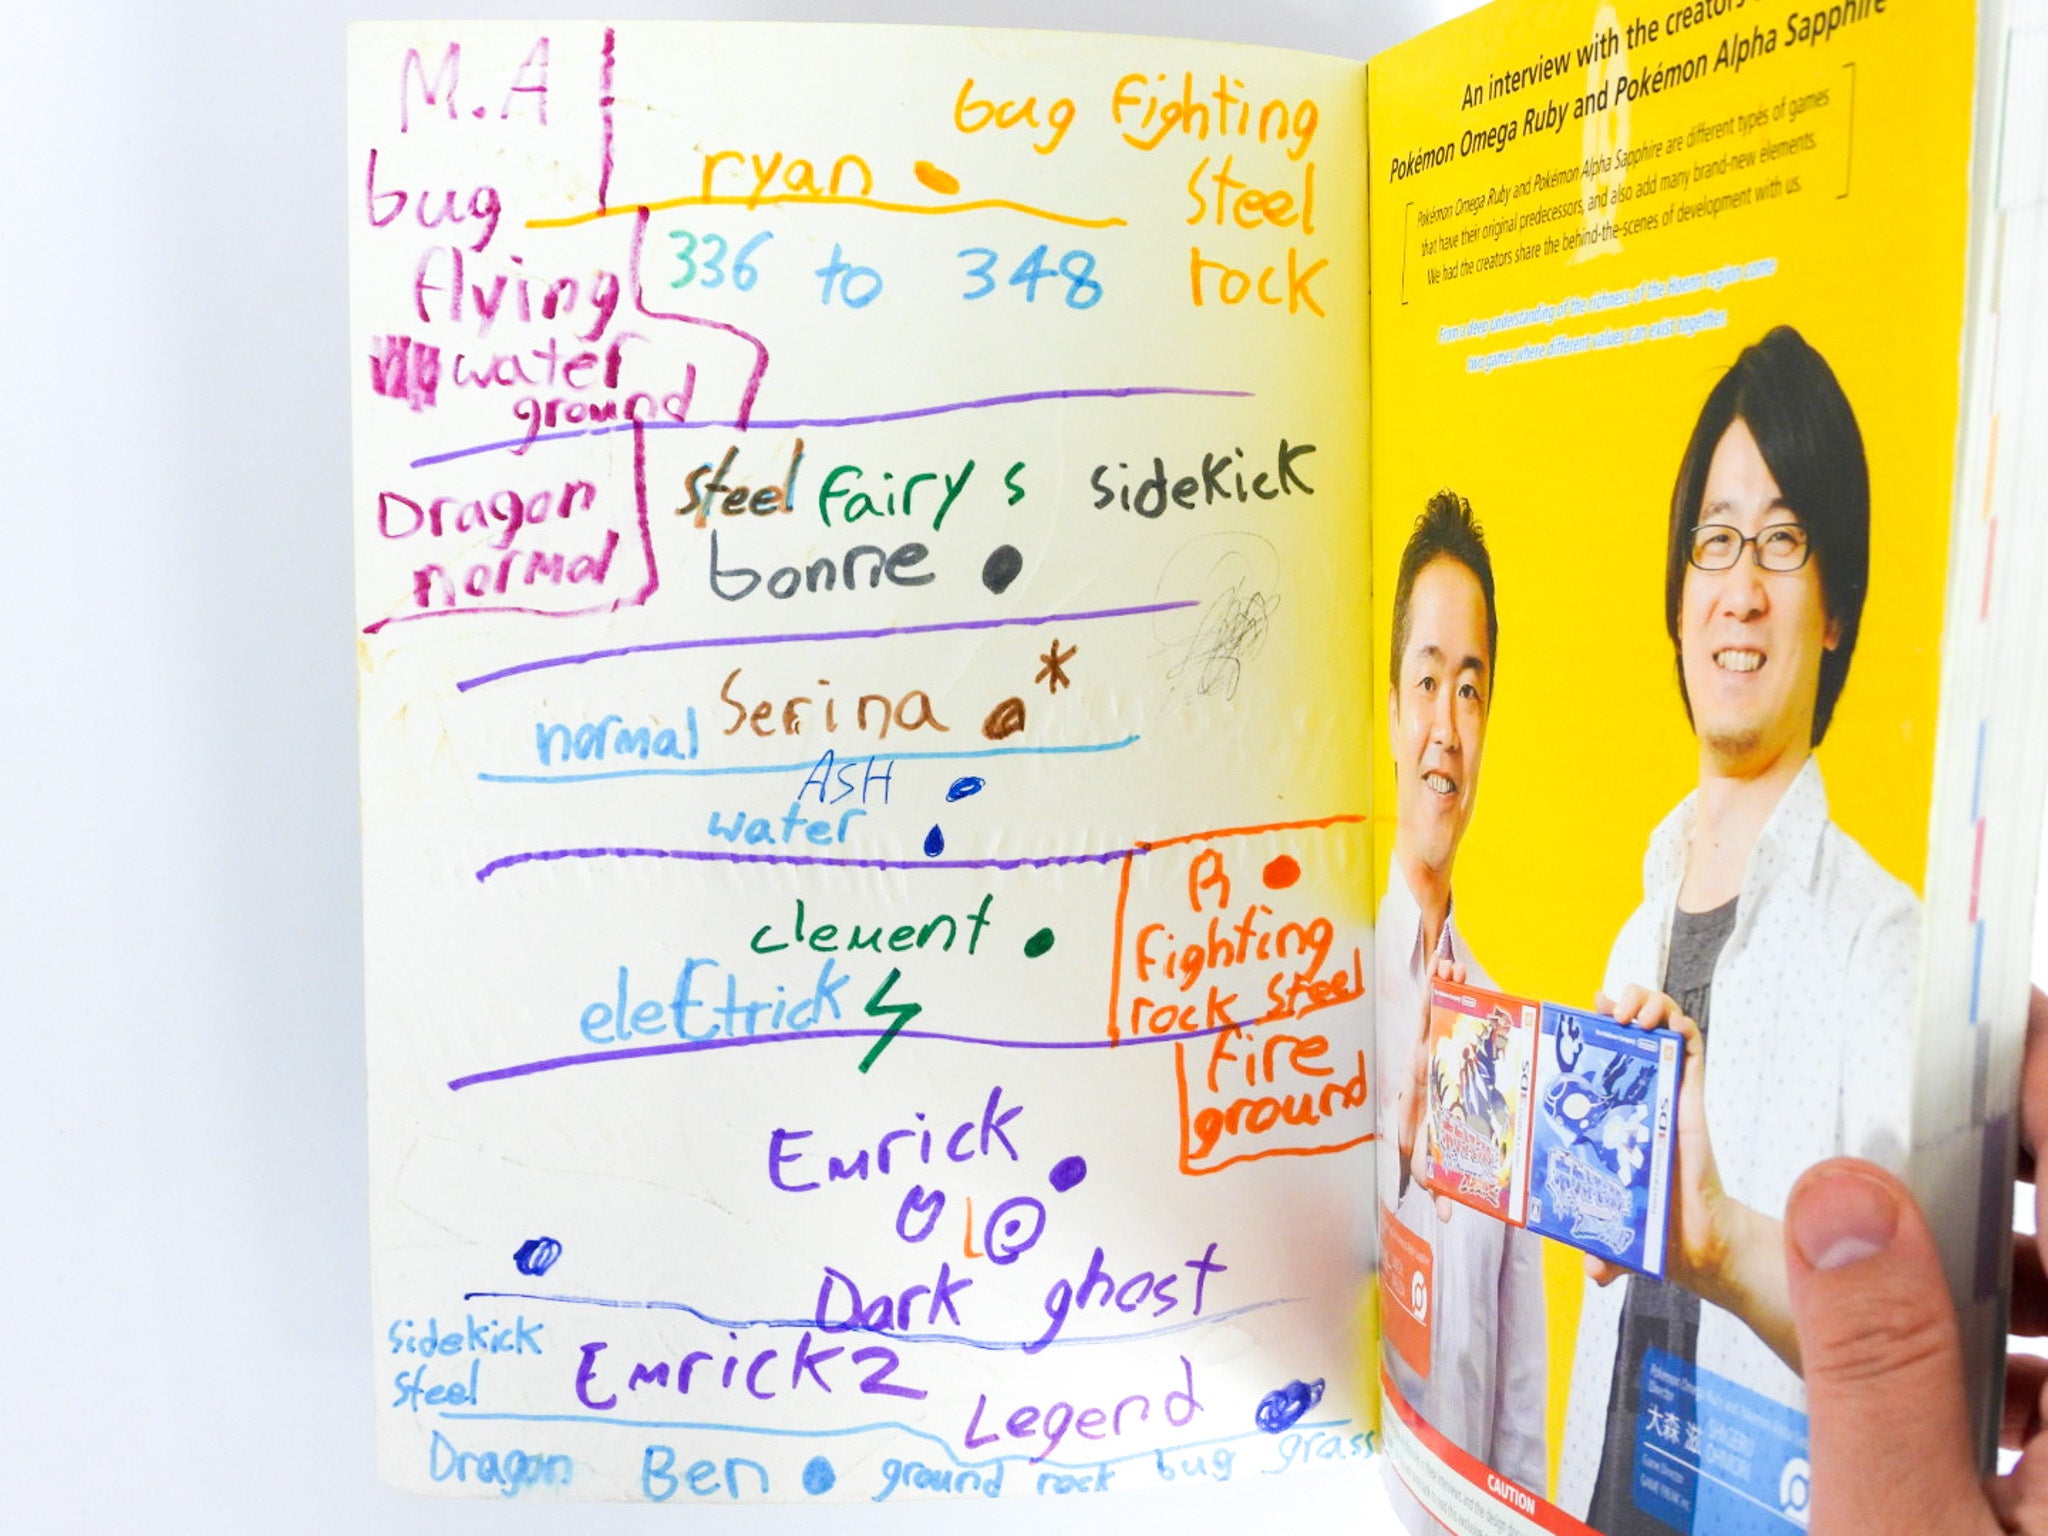 M.A
bug
flying
water
ground
Dragon
normal
ryan
bug Fighting
Steel
rock
336 to 348
Steel Fairy s sidekick
bonne
Serina *
normal
ASH
water
clement
eleEtrick
R
Fighting
rock Steel
Fire
ground
Emrick
Dark ghost
Sidekick
Steel
Emrick2
Legend
Dragon Ben ground rock bug grass
An interview with the creators
Pokémon Omega Ruby and Pokémon Alpha Sapphire
Pokémon Omega Ruby and Pokémon Alpha Sapphire are different types of games
that have their original predecessors, and also add many brand-new elements.
We had the creators share the behind-the-scenes of development with us.
From a deep understanding of the richness of the Hoenn region come
two games where different values can exist together.
3DS
3DS
Director
大森 滋
SHIGERU
OHMORI
CAUTION